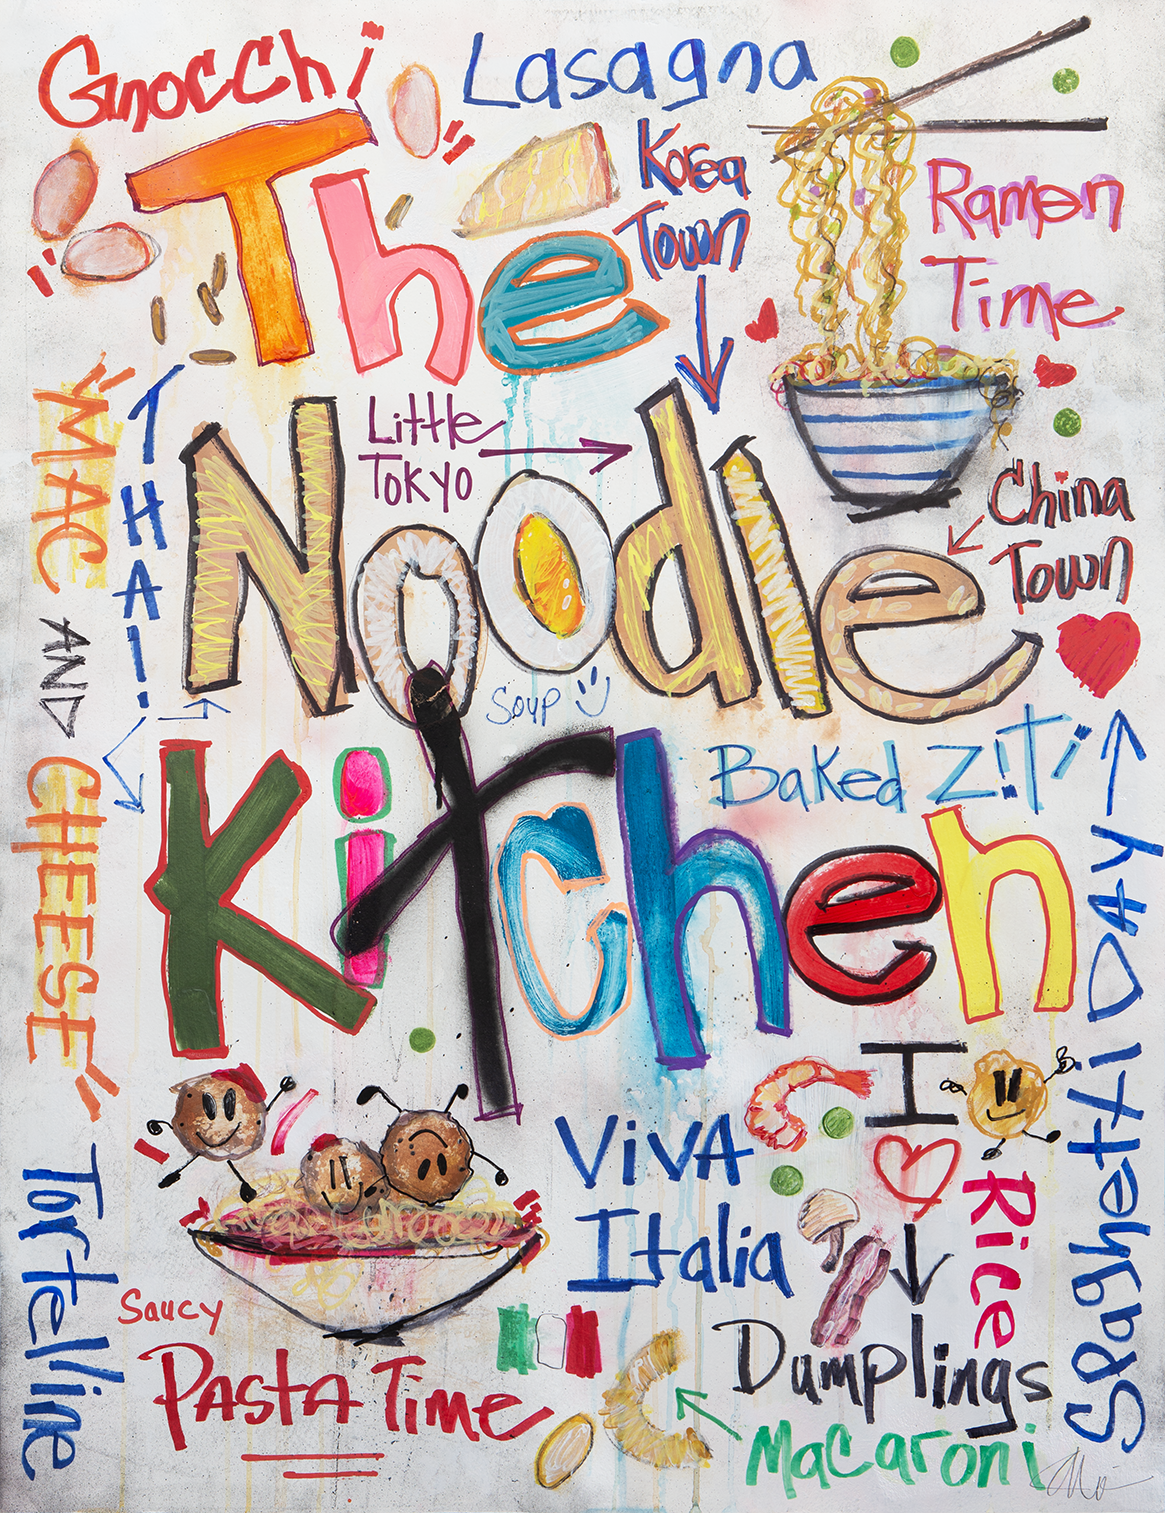 Gnocchi
Lasagna
The
Korea
Town
Ramen
Time
"MAC
AND
CHEESE"
THAI!
Little
TOKYO
Noodle
China
Town
Soup
Kitchen
Baked Z!Ti
SPaghetti DAY
TorTelline
VIVA
Italia
I
Rice
Dumplings
Saucy
PASTA Time
Macaroni